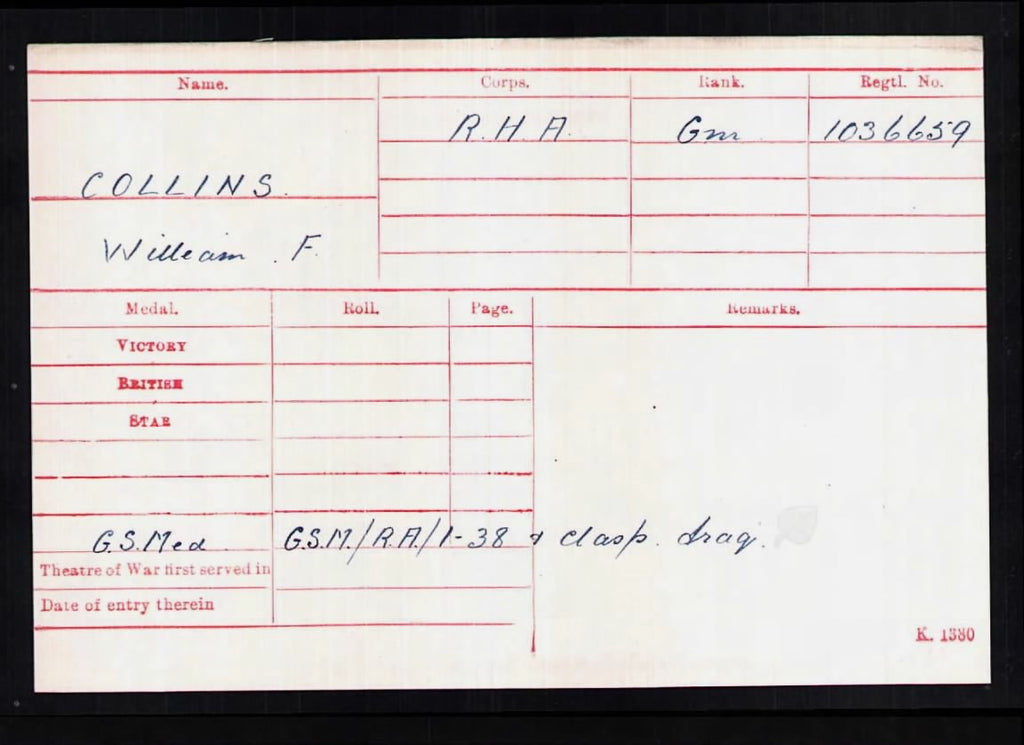 Name. Corps. Rank. Regtl. No.
R.H.A. Gnr. 1036659
COLLINS.
William. F.
Medal. Roll. Page. Remarks.
VICTORY
BRITISH
STAR
G.S.Med. G.S.M./R.A./1-38 & clasp. Iraq.
Theatre of War first served in
Date of entry therein
K. 1380